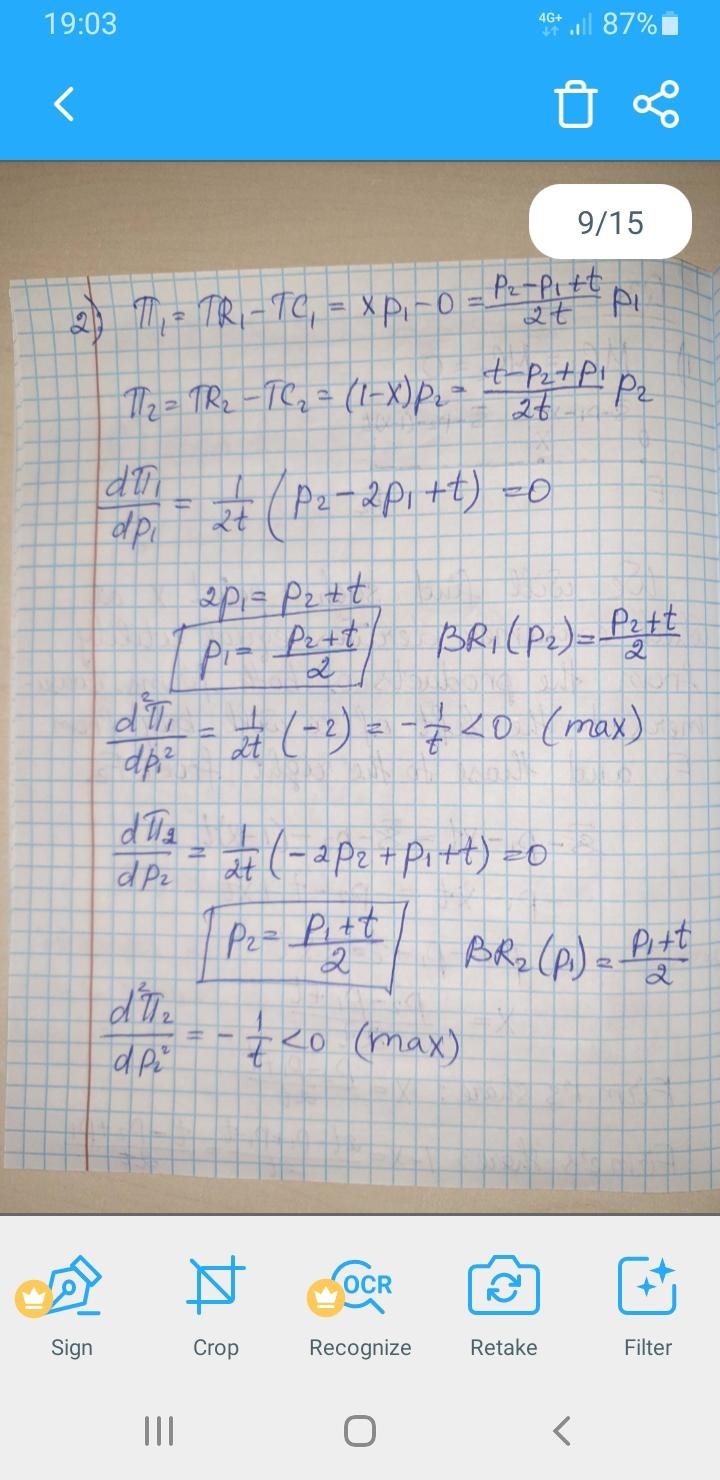 19:03 4G+ 87%
9/15
2) π₁ = TR₁ - TC₁ = xp₁ - 0 = (p₂ - p₁ + t)/2t p₁
π₂ = TR₂ - TC₂ = (1-x)p₂ = (t - p₂ + p₁)/2t p₂
dπ₁/dp₁ = 1/2t (p₂ - 2p₁ + t) = 0
2p₁ = p₂ + t
p₁ = (p₂ + t)/2 BR₁(p₂) = (p₂ + t)/2
d²π₁/dp₁² = 1/2t (-2) = -1/t < 0 (max)
dπ₂/dp₂ = 1/2t (-2p₂ + p₁ + t) = 0
p₂ = (p₁ + t)/2 BR₂(p₁) = (p₁ + t)/2
d²π₂/dp₂² = -1/t < 0 (max)
OCR
Sign Crop Recognize Retake Filter